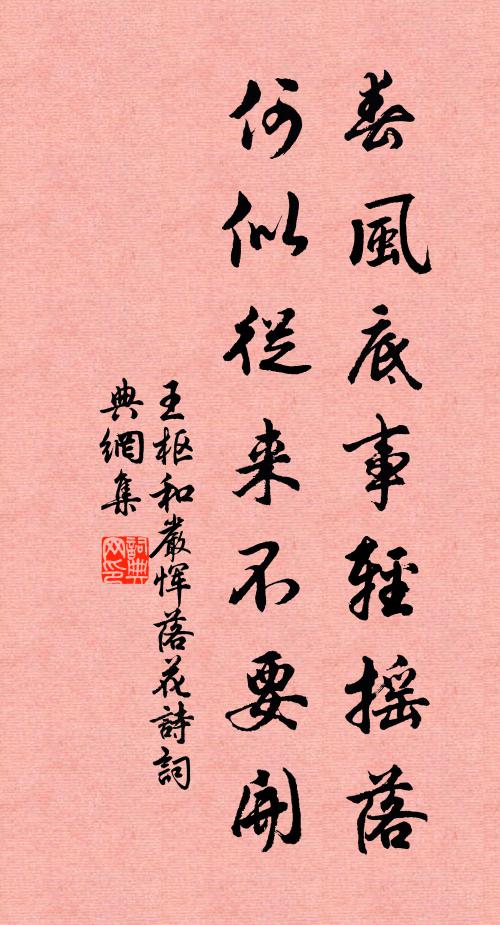 春風底事輕摇落
何似從来不要開
王枢和嚴惲落花詩詞
典網集
詞典網印